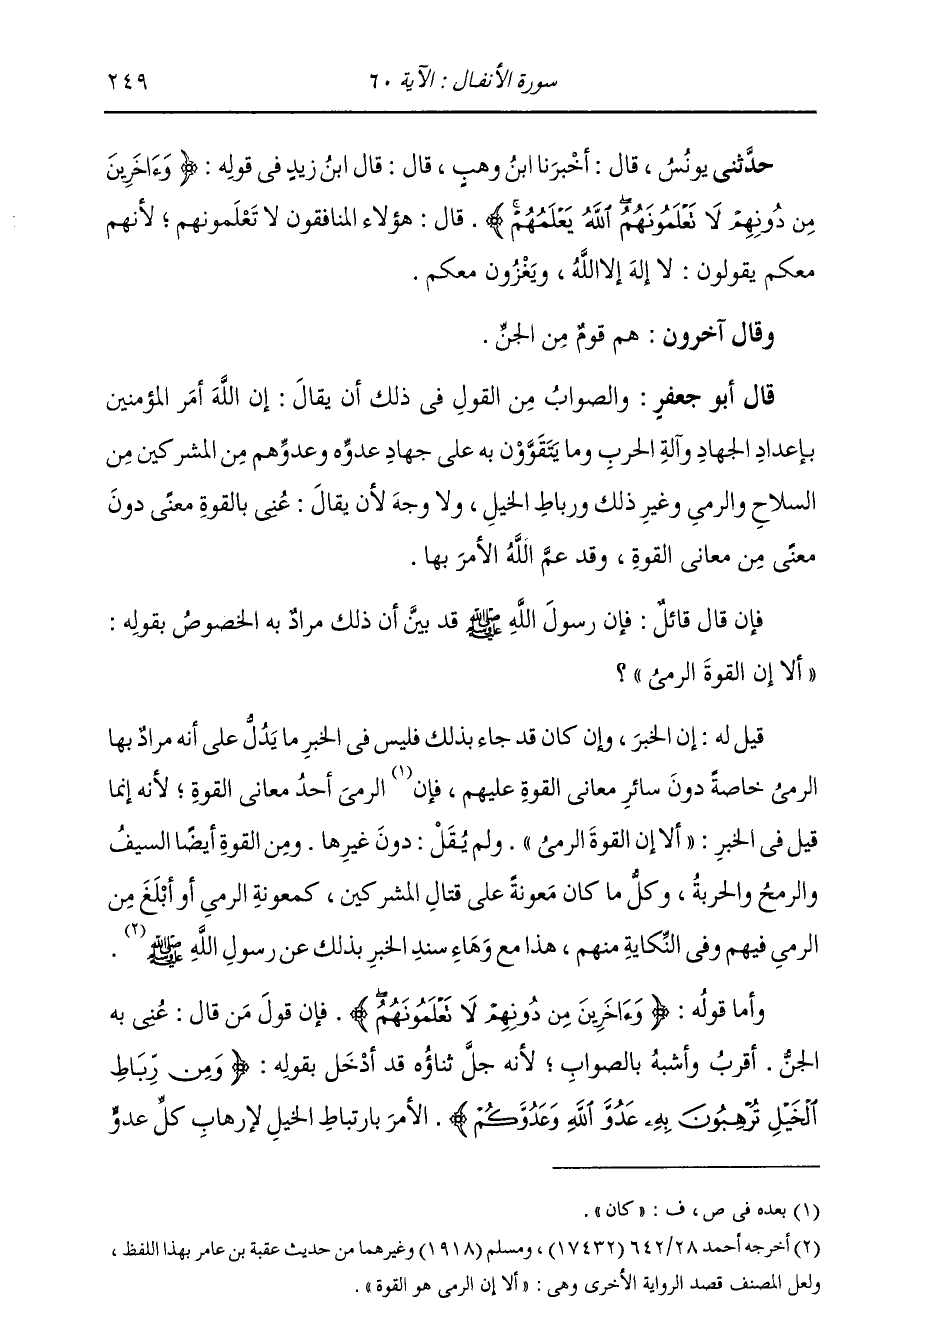 سورة الأنفال : الآية ٦٠
٢٤٩
حدَّثنى يونُسُ ، قال : أخْبرَنا ابنُ وهبٍ ، قال : قال ابنُ زيدٍ فى قولِه : ﴿ وَءَاخَرِينَ
مِن دُونِهِمْ لَا نَعْلَمُونَهُمُ ۖ ٱللَّهُ يَعْلَمُهُمْ ۚ ﴾ . قال : هؤلاء المنافقون لا تَعْلَمونهم ؛ لأنهم
معكم يقولون : لا إلهَ إلا اللَّهُ ، ويَغْزُون معكم .
وقال آخرون : هم قومٌ مِن الجنِّ .
قال أبو جعفرٍ : والصوابُ مِن القولِ فى ذلك أن يقالَ : إن اللَّهَ أمَر المؤمنين
بإعدادِ الجهادِ وآلةِ الحربِ وما يَتَقَوَّوْن به على جهادِ عدوِّه وعدوِّهم مِن المشركين مِن
السلاحِ والرمىِ وغيرِ ذلك ورباطِ الخيلِ ، ولا وجهَ لأن يقالَ : عُنِى بالقوةِ معنًى دونَ
معنًى مِن معانى القوةِ ، وقد عمَّ اللَّهُ الأمرَ بها .
فإن قال قائلٌ : فإن رسولَ اللَّهِ ﷺ قد بينَّ أن ذلك مرادٌ به الخصوصُ بقولِه :
« ألا إن القوةَ الرمىُ » ؟
قيل له : إن الخبرَ ، وإن كان قد جاء بذلك فليس فى الخبرِ ما يَدُلُّ على أنه مرادٌ بها
الرمىُ خاصةً دونَ سائرِ معانى القوةِ عليهم ، فإن(١) الرمىَ أحدُ معانى القوةِ ؛ لأنه إنما
قيل فى الخبرِ : « ألا إن القوةَ الرمىُ » . ولم يُقَلْ : دونَ غيرِها . ومِن القوةِ أيضًا السيفُ
والرمحُ والحربةُ ، وكلُّ ما كان مَعونةً على قتالِ المشركين ، كمعونةِ الرمىِ أو أبْلَغَ مِن
الرمىِ فيهم وفى النِّكايةِ منهم ، هذا مع وَهَاءِ سندِ الخبرِ بذلك عن رسولِ اللَّهِ ﷺ(٢) .
وأما قولُه : ﴿ وَءَاخَرِينَ مِن دُونِهِمْ لَا نَعْلَمُونَهُمُ ۖ ﴾ . فإن قولَ مَن قال : عُنِى به
الجنُّ . أقربُ وأشبهُ بالصوابِ ؛ لأنه جلَّ ثناؤُه قد أدْخَل بقولِه : ﴿ وَمِن رِّبَاطِ
ٱلْخَيْلِ تُرْهِبُونَ بِهِۦ عَدُوَّ ٱللَّهِ وَعَدُوَّكُمْ ﴾ . الأمرَ بارتباطِ الخيلِ لإرهابِ كلِّ عدوٍّ
(١) بعده فى ص ، ف : « كان » .
(٢) أخرجه أحمد ٦٤٢/٢٨ (١٧٤٣٢) ، ومسلم (١٩١٨) وغيرهما من حديث عقبة بن عامر بهذا اللفظ ،
ولعل المصنف قصد الرواية الأخرى وهى : « ألا إن الرمى هو القوة » .